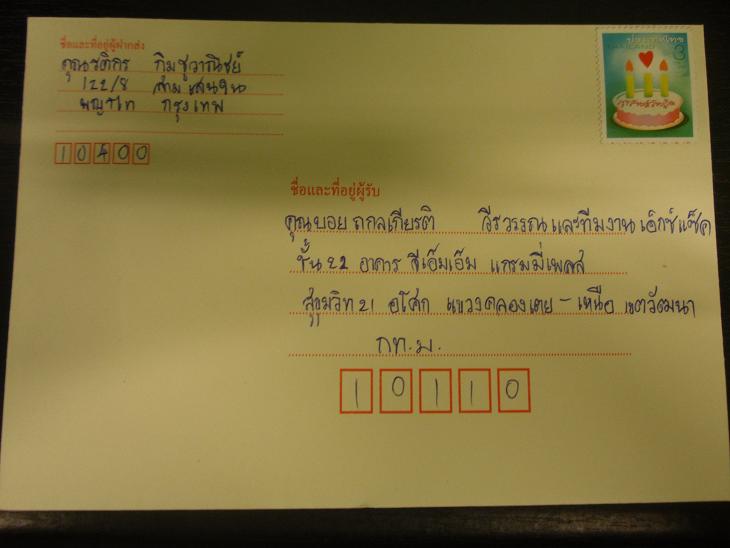 ชื่อและที่อยู่ผู้ฝากส่ง
คุณรติกร กิมชูวาณิชย์
122/8 สามเสนใน
พญาไท กรุงเทพ
10400
ประเทศไทย
THAILAND 3
ชื่อและที่อยู่ผู้รับ
คุณบอย ถกลเกียรติ วีรวรรณ และทีมงาน เอ็กซ์แซ็ค
ชั้น 22 อาคาร จีเอ็มเอ็ม แกรมมี่เพลส
สุขุมวิท 21 อโศก แขวงคลองเตย - เหนือ เขตวัฒนา
กท.ม.
10110